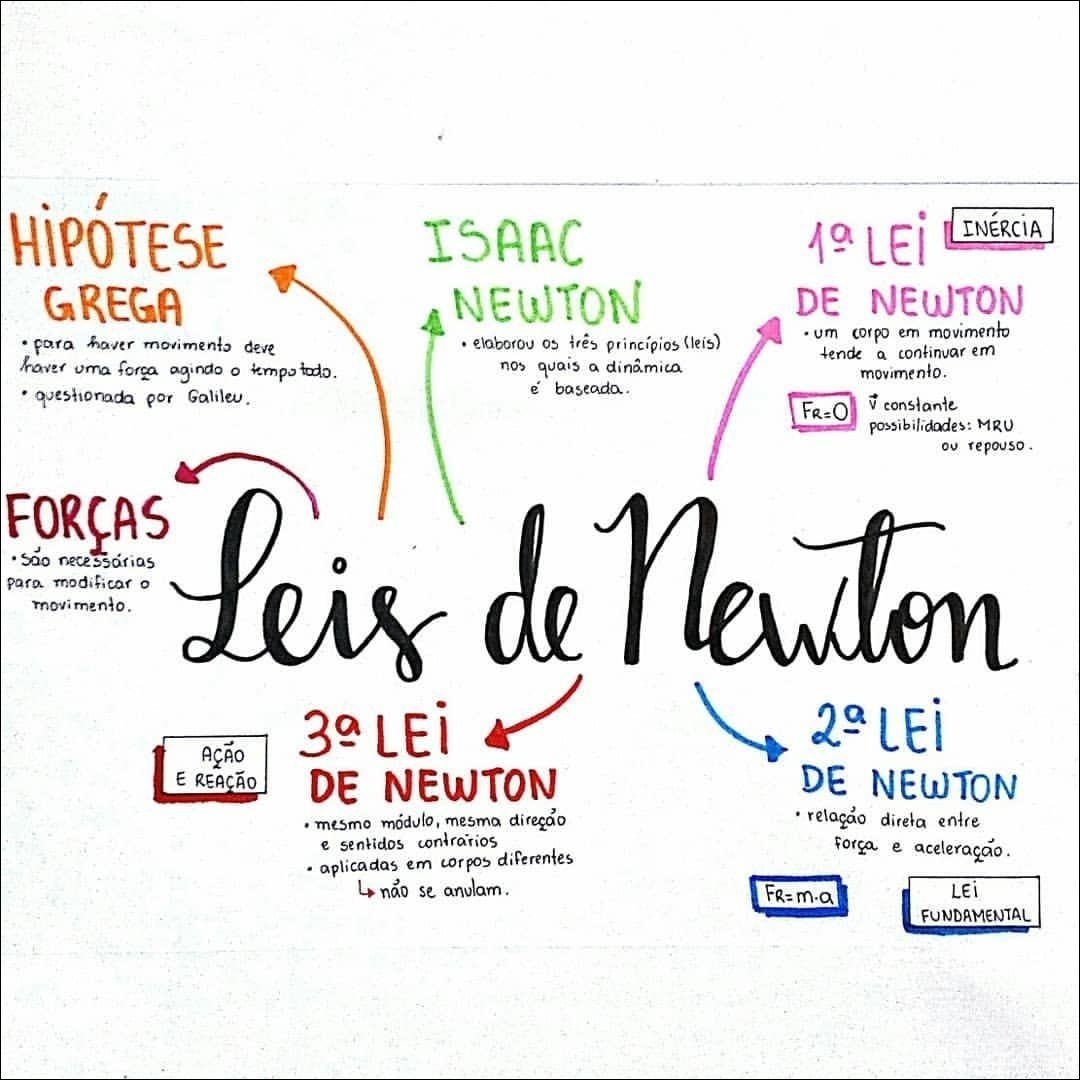 HIPÓTESE
GREGA
• para haver movimento deve
haver uma força agindo o tempo todo.
• questionada por Galileu.
ISAAC
NEWTON
• elaborou os três princípios (leis)
nos quais a dinâmica
é baseada.
1ª LEI
INÉRCIA
DE NEWTON
• um corpo em movimento
tende a continuar em
movimento.
FR=0
v⃗ constante
possibilidades: MRU
ou repouso.
FORÇAS
• são necessárias
para modificar o
movimento.
Leis de Newton
AÇÃO
E REAÇÃO
3ª LEI
DE NEWTON
• mesmo módulo, mesma direção
e sentidos contrários
• aplicadas em corpos diferentes
↳ não se anulam.
2ª LEI
DE NEWTON
• relação direta entre
força e aceleração.
FR=m.a
LEI
FUNDAMENTAL